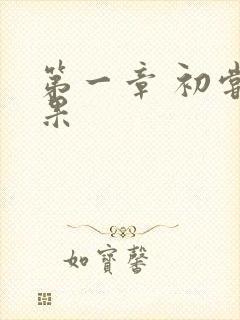 第一章 初尝
果
如寶馨